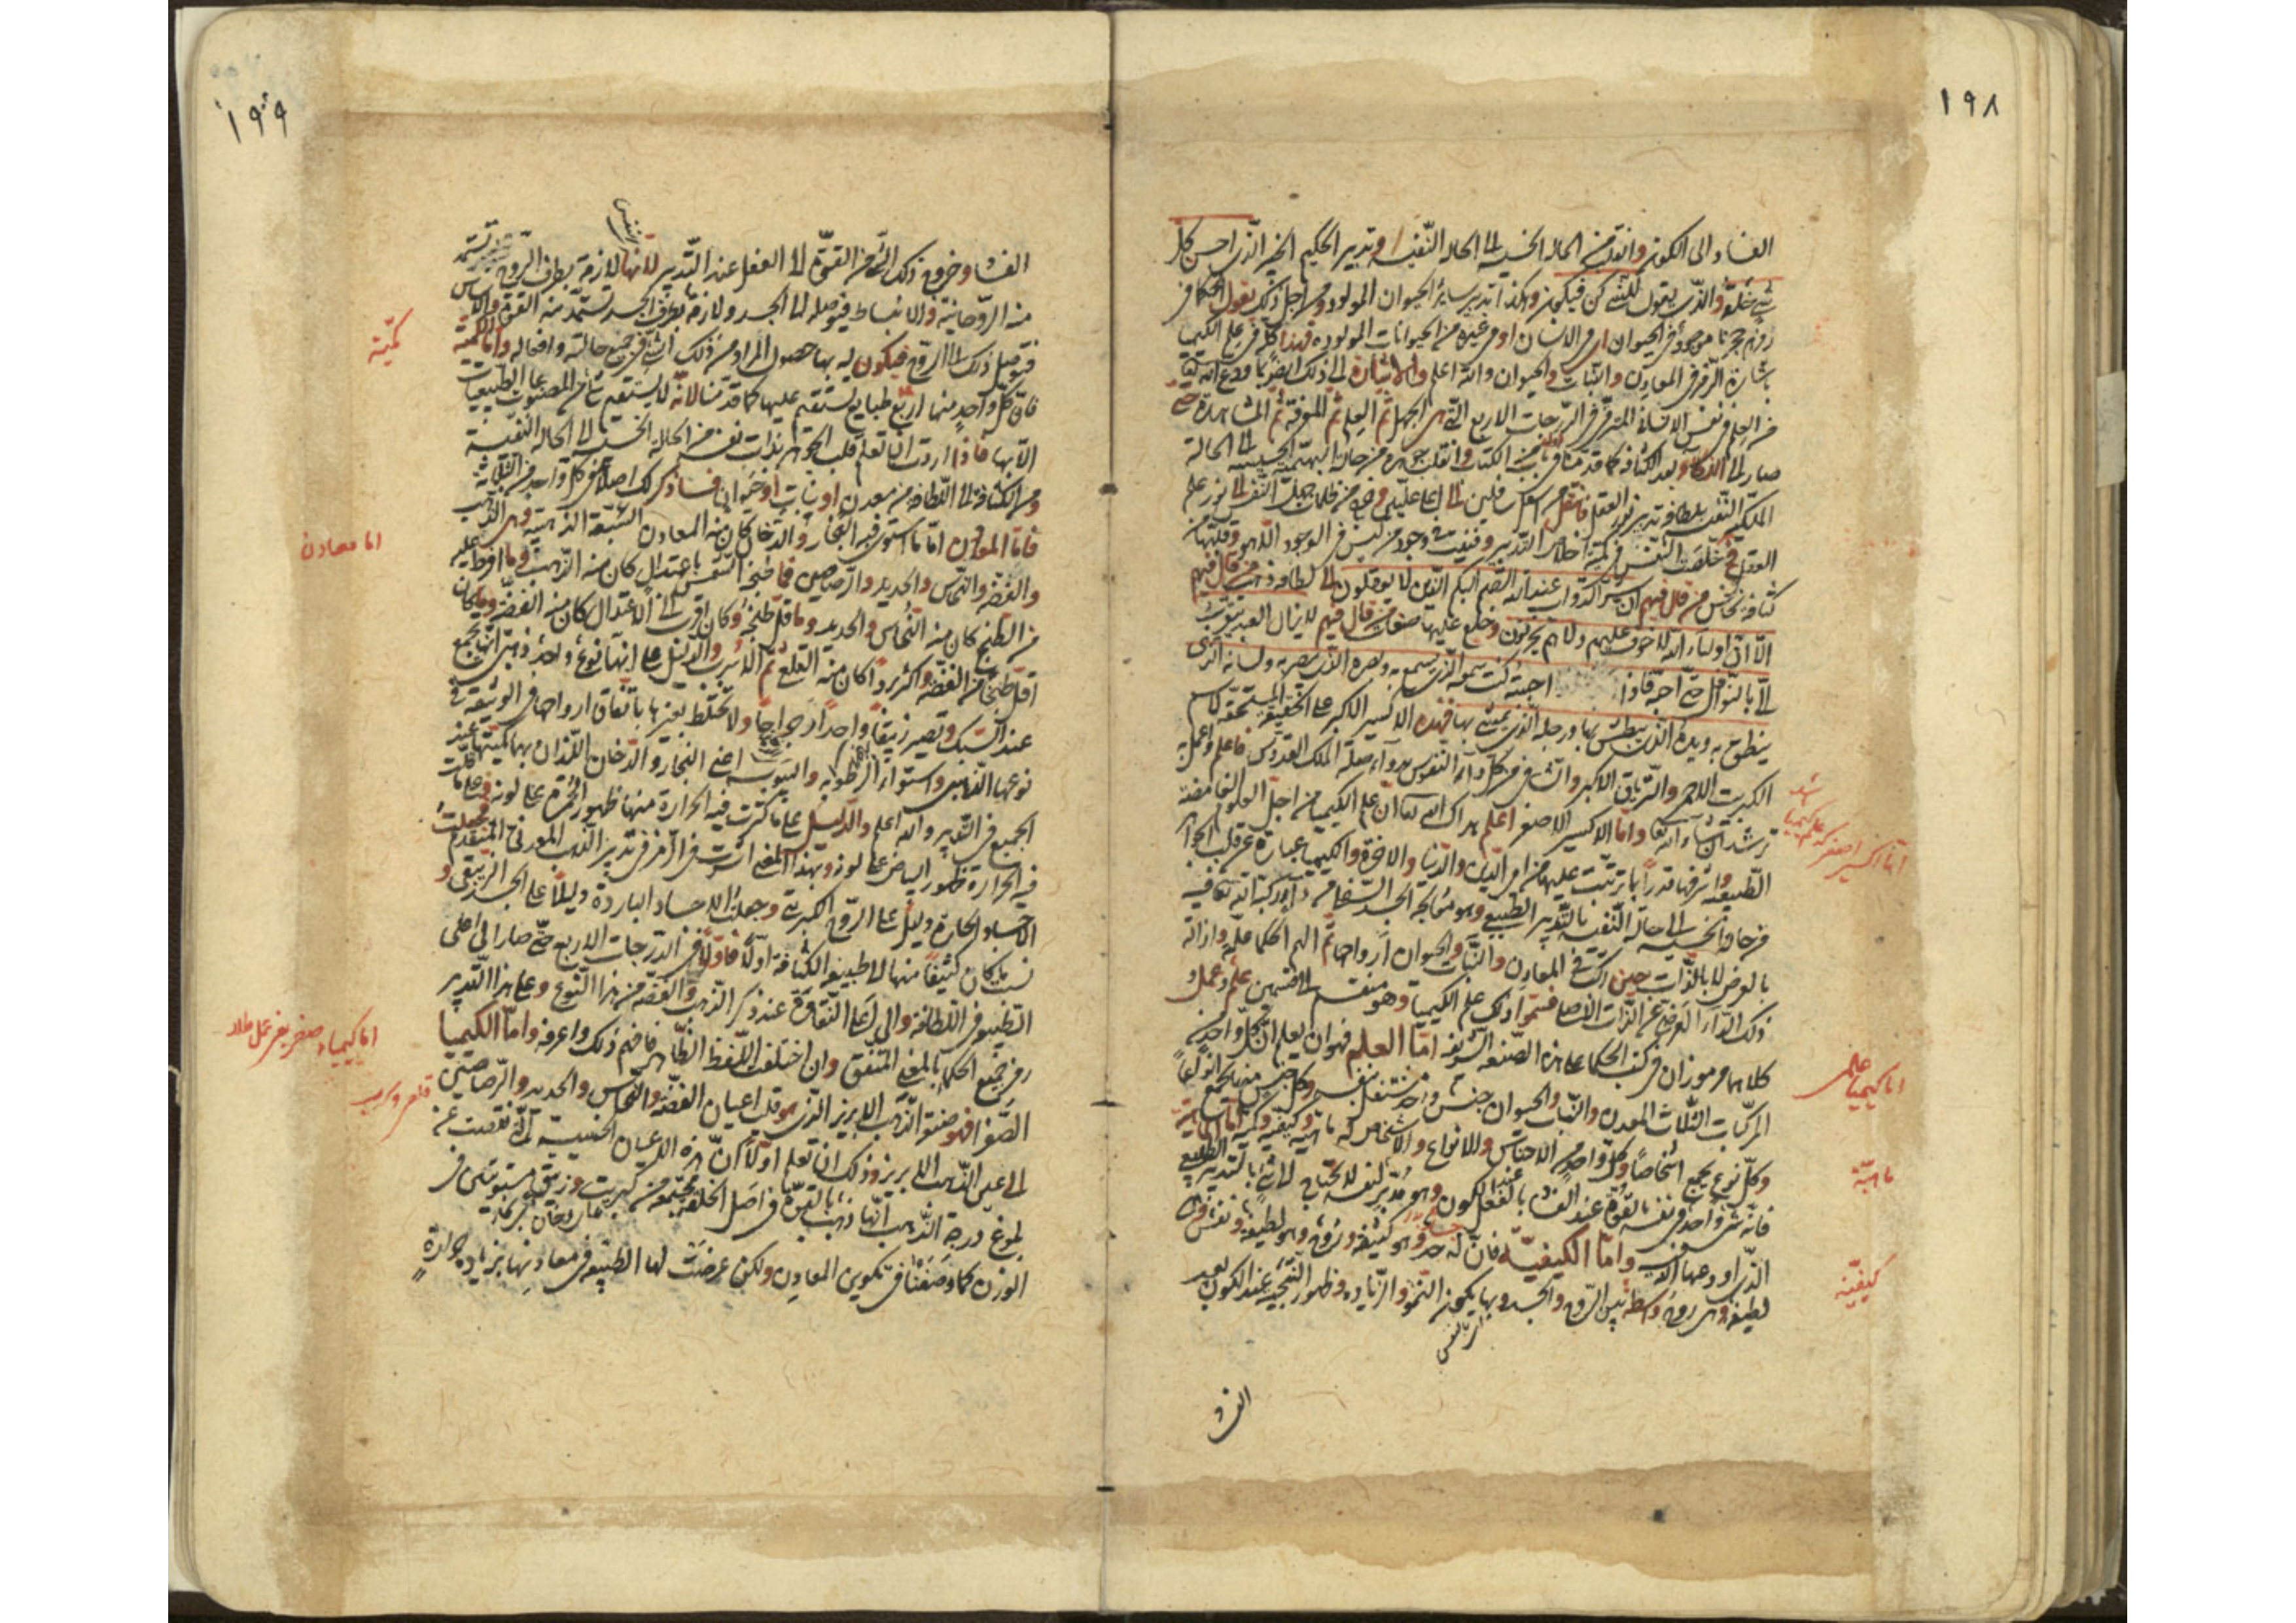 ١٩٨
الفساد الى الكون وانتقل من الحالة الخسيسة الى الحالة النفيسة وتدبير الحكيم الخبير الذى احسن كل
شئ خلقه والذى يقول للشئ كن فيكون وهكذا تدبير سائر الحيوان المولود ومن اجل ذلك يقول الحكما فى
رموزهم حجرنا موجود فى الحيوان اى فى الانسان او فى غيره من الحيوانات المولودة فهذا كله فى علم الكيميا
باشارة الرمز فى المعادن والنبات والحيوان والله اعلم والاشارة الى ذلك ايضا
من العلم فى نفس الانسان المترقى فى الدرجات الاربع التى هى الجهل ثم العلم ثم المعرفة ثم المشاهدة حتى
صار الى اللطافة بعد الكثافة كما قدمنا فى الكتاب وانقلب جوهره من حالة البهيمية الخسيسة الى الحالة
الملكية النفيسة بلطافة تدبير نور العقل فانتقل من اسفل سافلين الى اعلى عليين وخرج من ظلمات جهل النفس الى نور علم
العقل خلصت النفس
كثافة نجاس من قال فيهم ان شر الدواب عند الله الصم البكم الذين لا يعقلون الى لطافة ذهب من قال فيهم
الا ان اولياء الله لا خوف عليهم ولا هم يحزنون وخلع عليها صفات من قال فيهم لا يزال العبد يتقرب
الى بالنوافل حتى احبه فاذا احببته كنت سمعه الذى يسمع به وبصره الذى يبصر به ولسانه الذى
ينطق به ويده الذى يبطش بها ورجله الذى يمشى بها فهذه الاكسير الاكبر على الحقيقة المستحقة لاسم
الكبريت الاحمر والترياق الاكبر والشافى من كل داء النفوس بدواء صلة الملك القدوس فاعلم واعمل به
ترشد ان شاء الله تعالى واما الاكسير الاصغر اعلم هداك الله تعالى ان علم الكيميا من اجل العلوم الغامضة
الطبيعية واشرفها قدرا بما يترتب عليها من امر الدين والدنيا والاخرة والكيميا عبارة عن قلب الجواهر
من حالة الخسيسة الى حالة النفيسة بالتدبير الطبيعى وهو معالجة الجسد السقام من داء ركبه الله تعالى فيه
بالعرض لا بالذات حين اركب فى المعادن والنبات والحيوان ارواحها ثم الهم الحكما علمه وازالة
ذلك الداء العرضى عن الذات الاصلى فسموا ذلك علم الكيميا وهو منقسم الى قسمين علم وعمل
كلاهما مرموزان فى كتب الحكما على هذه الصنعة الشريفة اما العلم فهو ان يعلم ان كل واحد من
المركبات الثلاث المعدن والنبات والحيوان جنس واحد مستقل بنفسه وكل جنس منها يجمع انواعا
وكل نوع يجمع اشخاصا وكل واحد من الاجناس والانواع والاشخاص له ماهية وكيفية وكمية اما الماهية
فانه شئ واحد فى نفسه بالقوة عند الفساد بالفعل عند الكون وهو مدبر لنفسه لا يحتاج الى شئ بالتدبير الطبيعى
الذى اودعها الله فيه واما الكيفية فان له جسد وهو كثيفه وروح وهو لطيفه ونفس
لطيفة وهى روح واسطة بين الروح والجسد وبها يكون النمو والزيادة وظهور النتيجة عند الكون بعد
الفساد
اما اكسير اصغر كه علم كيميا
اما كيمياء علمى
ماهية
كيفية
١٩٩
الفساد وخروج ذلك الشئ من القوة الى الفعل عند التدبير لانها لازمة بطرف الروح تستمد
منه الروحانية والانبساط فيوصله الى الجسد ولازمة بطرف الجسد تستمد منه القوة والاساس
فتوصل ذلك الى الروح فيكون له بها حصول المراد من ذلك الشئ فى جميع حالته وافعاله واما الكمية
فان كل واحد منها اربع طبايع يستقيم عليها كما قدمنا لانه لا يستقيم شئ من المصنوعات الطبيعيات
الا بها فاذا اردت ان تعلم قلب الجواهر بذات نفسه من الحالة الخسيسة الى الحالة النفيسة
ومن الكثافة الى اللطافة من معدن او نبات او حيوان فساذكر لك اصلا فى كل واحد من الثلاثة
فاما المعادن اما ما استوى فيه البخار والدخان كان منه المعادن السبعة الذهبية وهى الذهب
والفضة والنحاس والحديد والرصاصين فما طبخه الشمس باعتدال كان منه الذهب وما افرط عليه
من الطبخ كان منه النحاس والحديد وما قل طبخه وكان اقرب الى الاعتدال كان منه الفضة وما كان
اقل طبخا من الفضة واكثر بردا كان منه القلع ثم الاسرب والدليل على انها نوع واحد ذهبى انها تجمع
عند السبك وتصير زيبقا واحدا رجراجا ولا تختلط بغيرها باتفاق ارواحها فى الوثيقة فى
نوعها الذهبى واستواء الرطوبة واليبوسة اعنى البخار والدخان اللذان بهما كميتها عند
الجميع فى التدبير والله اعلم والدليل على ما كثرت فيه الحرارة منها ظهور الحمرة على لونه وما قلت
فيه الحرارة ظهور البياض على لونه وبهذا المعنى اشرت فى الرمز فى تدبير الذهب المعدنى المتقدم فجعلت
الاجساد الحارة دليل على الروح الكبريتى وجعلت الاجساد الباردة دليلا على الجسد الزيبقى و
نسبت ما كان كثيفا منها الى طبيعة الكثافة اولا فاولا فى الدرجات الاربع حتى صار الى اعلى
التطبيع فى اللطافة والى على النقاوة عند ذكر الذهب والفضة من هذا النوع وعلى هذا التدبير
رمز جميع الحكما بالمعنى المتفق وان اختلف اللفظ الظاهر فافهم ذلك واعرفه واما الكيميا
الصغرا فهو صنعة الذهب الابريز الذى هو قلب اعيان الفضة والنحاس والحديد والرصاصين
الى عين الذهب الابريز وذلك ان تعلم اولا ان هذه الاعيان الخسيسة التى نقصت عن
بلوغ درجة الذهب انها ذهب بالقوة فى اصل الخلقة مجتمعة من كبريت وزيبق مستويين فى
الوزن كما وصفنا فى تكوين المعادن ولكن عرضت لها الطبيعة فى معادنها بزيادة حرارة
النفس
كمية
اما معادن
اما كيمياء صغر يعنى عمل طلا